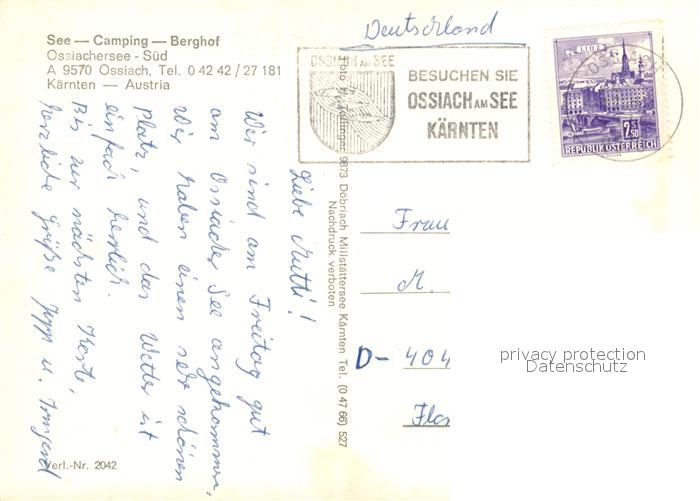 See — Camping — Berghof
Ossiachersee - Süd
A 9570 Ossiach, Tel. 0 42 42 / 27 181
Kärnten — Austria
Deutschland
OSSIACH AM SEE
BESUCHEN SIE
OSSIACH AM SEE
KÄRNTEN
LINZ
2.50
REPUBLIK ÖSTERREICH
Liebe Mutti!
Wir sind am Freitag gut
am Ossiacher See angekommen,
Wir haben einen sehr schönen
Platz, und das Wetter ist
einfach herrlich.
Bis zur nächsten Karte,
herzliche Grüße Jupp u. Irmgard
9873 Döbriach Millstättersee Kärnten Tel. (0 47 66) 527
Nachdruck verboten
Frau
M.
D- 404
privacy protection
Datenschutz
Verl.-Nr. 2042